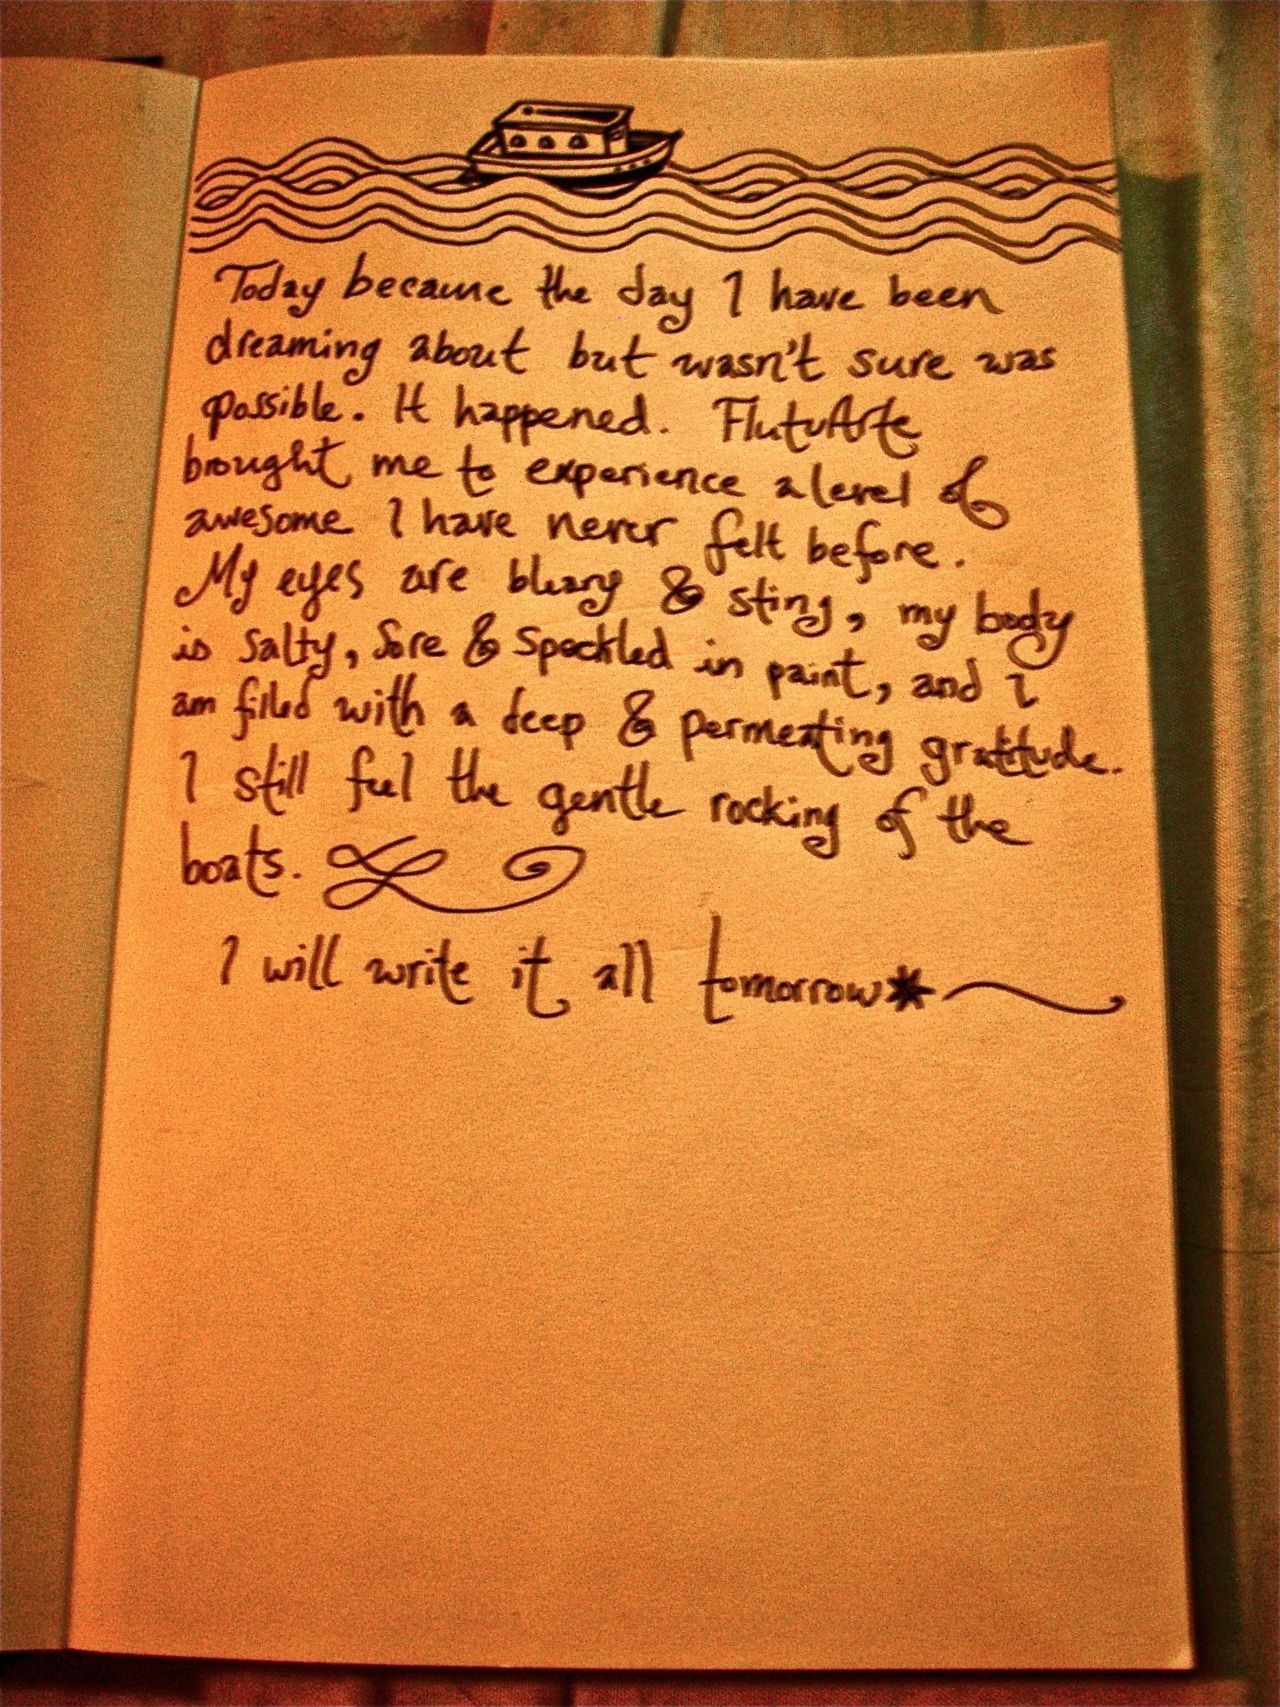 Today became the day I have been
dreaming about but wasn't sure was
possible. It happened. FlutuArte
brought me to experience a level of
awesome I have never felt before.
My eyes are bleary & sting, my body
is salty, sore & speckled in paint, and i
am filled with a deep & permeating gratitude.
I still feel the gentle rocking of the
boats.
I will write it all tomorrow*